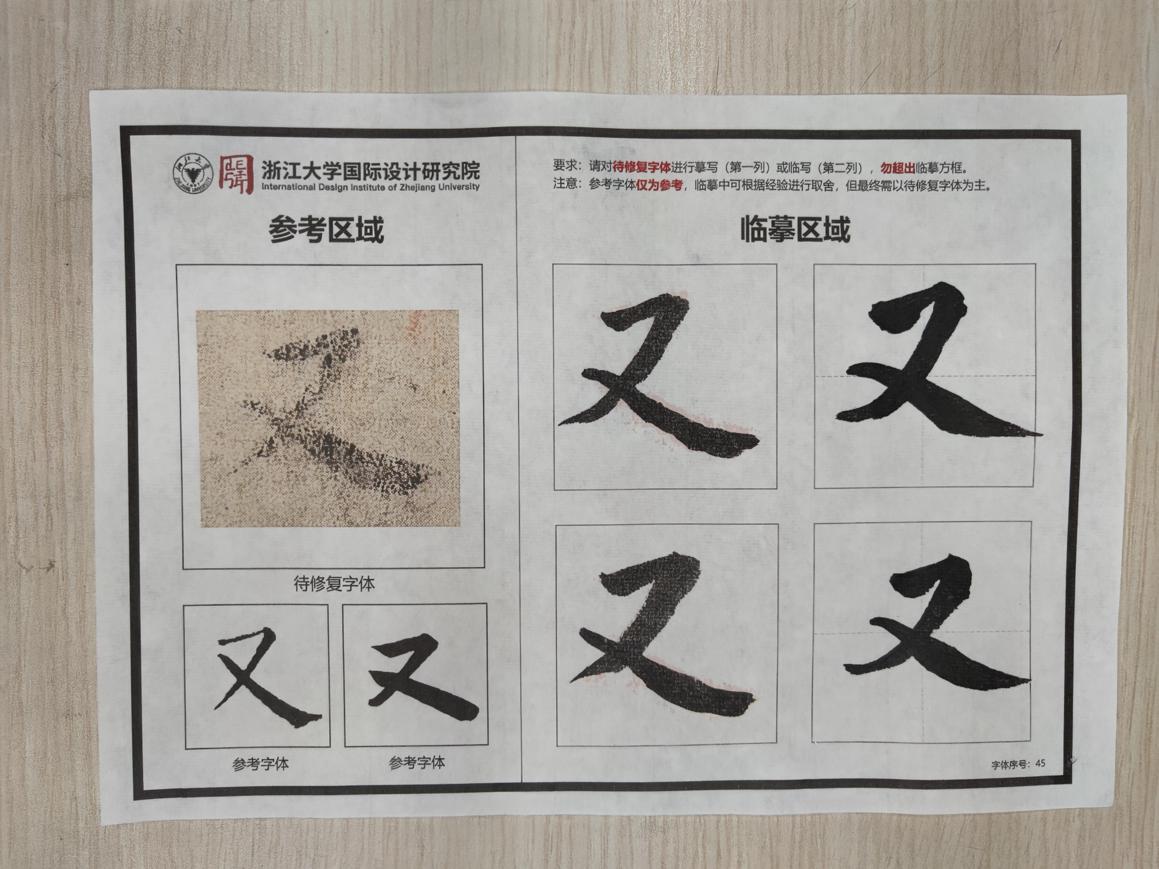 浙江大学国际设计研究院
International Design Institute of Zhejiang University
参考区域
又
待修复字体
又
又
参考字体
参考字体
要求：请对待修复字体进行摹写（第一列）或临写（第二列），勿超出临摹方框。
注意：参考字体仅为参考，临摹中可根据经验进行取舍，但最终需以待修复字体为主。
临摹区域
又
又
又
又
字体序号：45